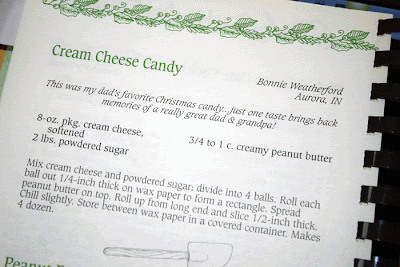 Cream Cheese Candy
Bonnie Weatherford
Aurora, IN
This was my dad's favorite Christmas candy...just one taste brings back
memories of a really great dad & grandpa!
8-oz. pkg. cream cheese,
softened
2 lbs. powdered sugar
3/4 to 1 c. creamy peanut butter
Mix cream cheese and powdered sugar; divide into 4 balls. Roll each
ball out 1/4-inch thick on wax paper to form a rectangle. Spread
peanut butter on top. Roll up from long end and slice 1/2-inch thick.
Chill slightly. Store between wax paper in a covered container. Makes
4 dozen.
Peanut